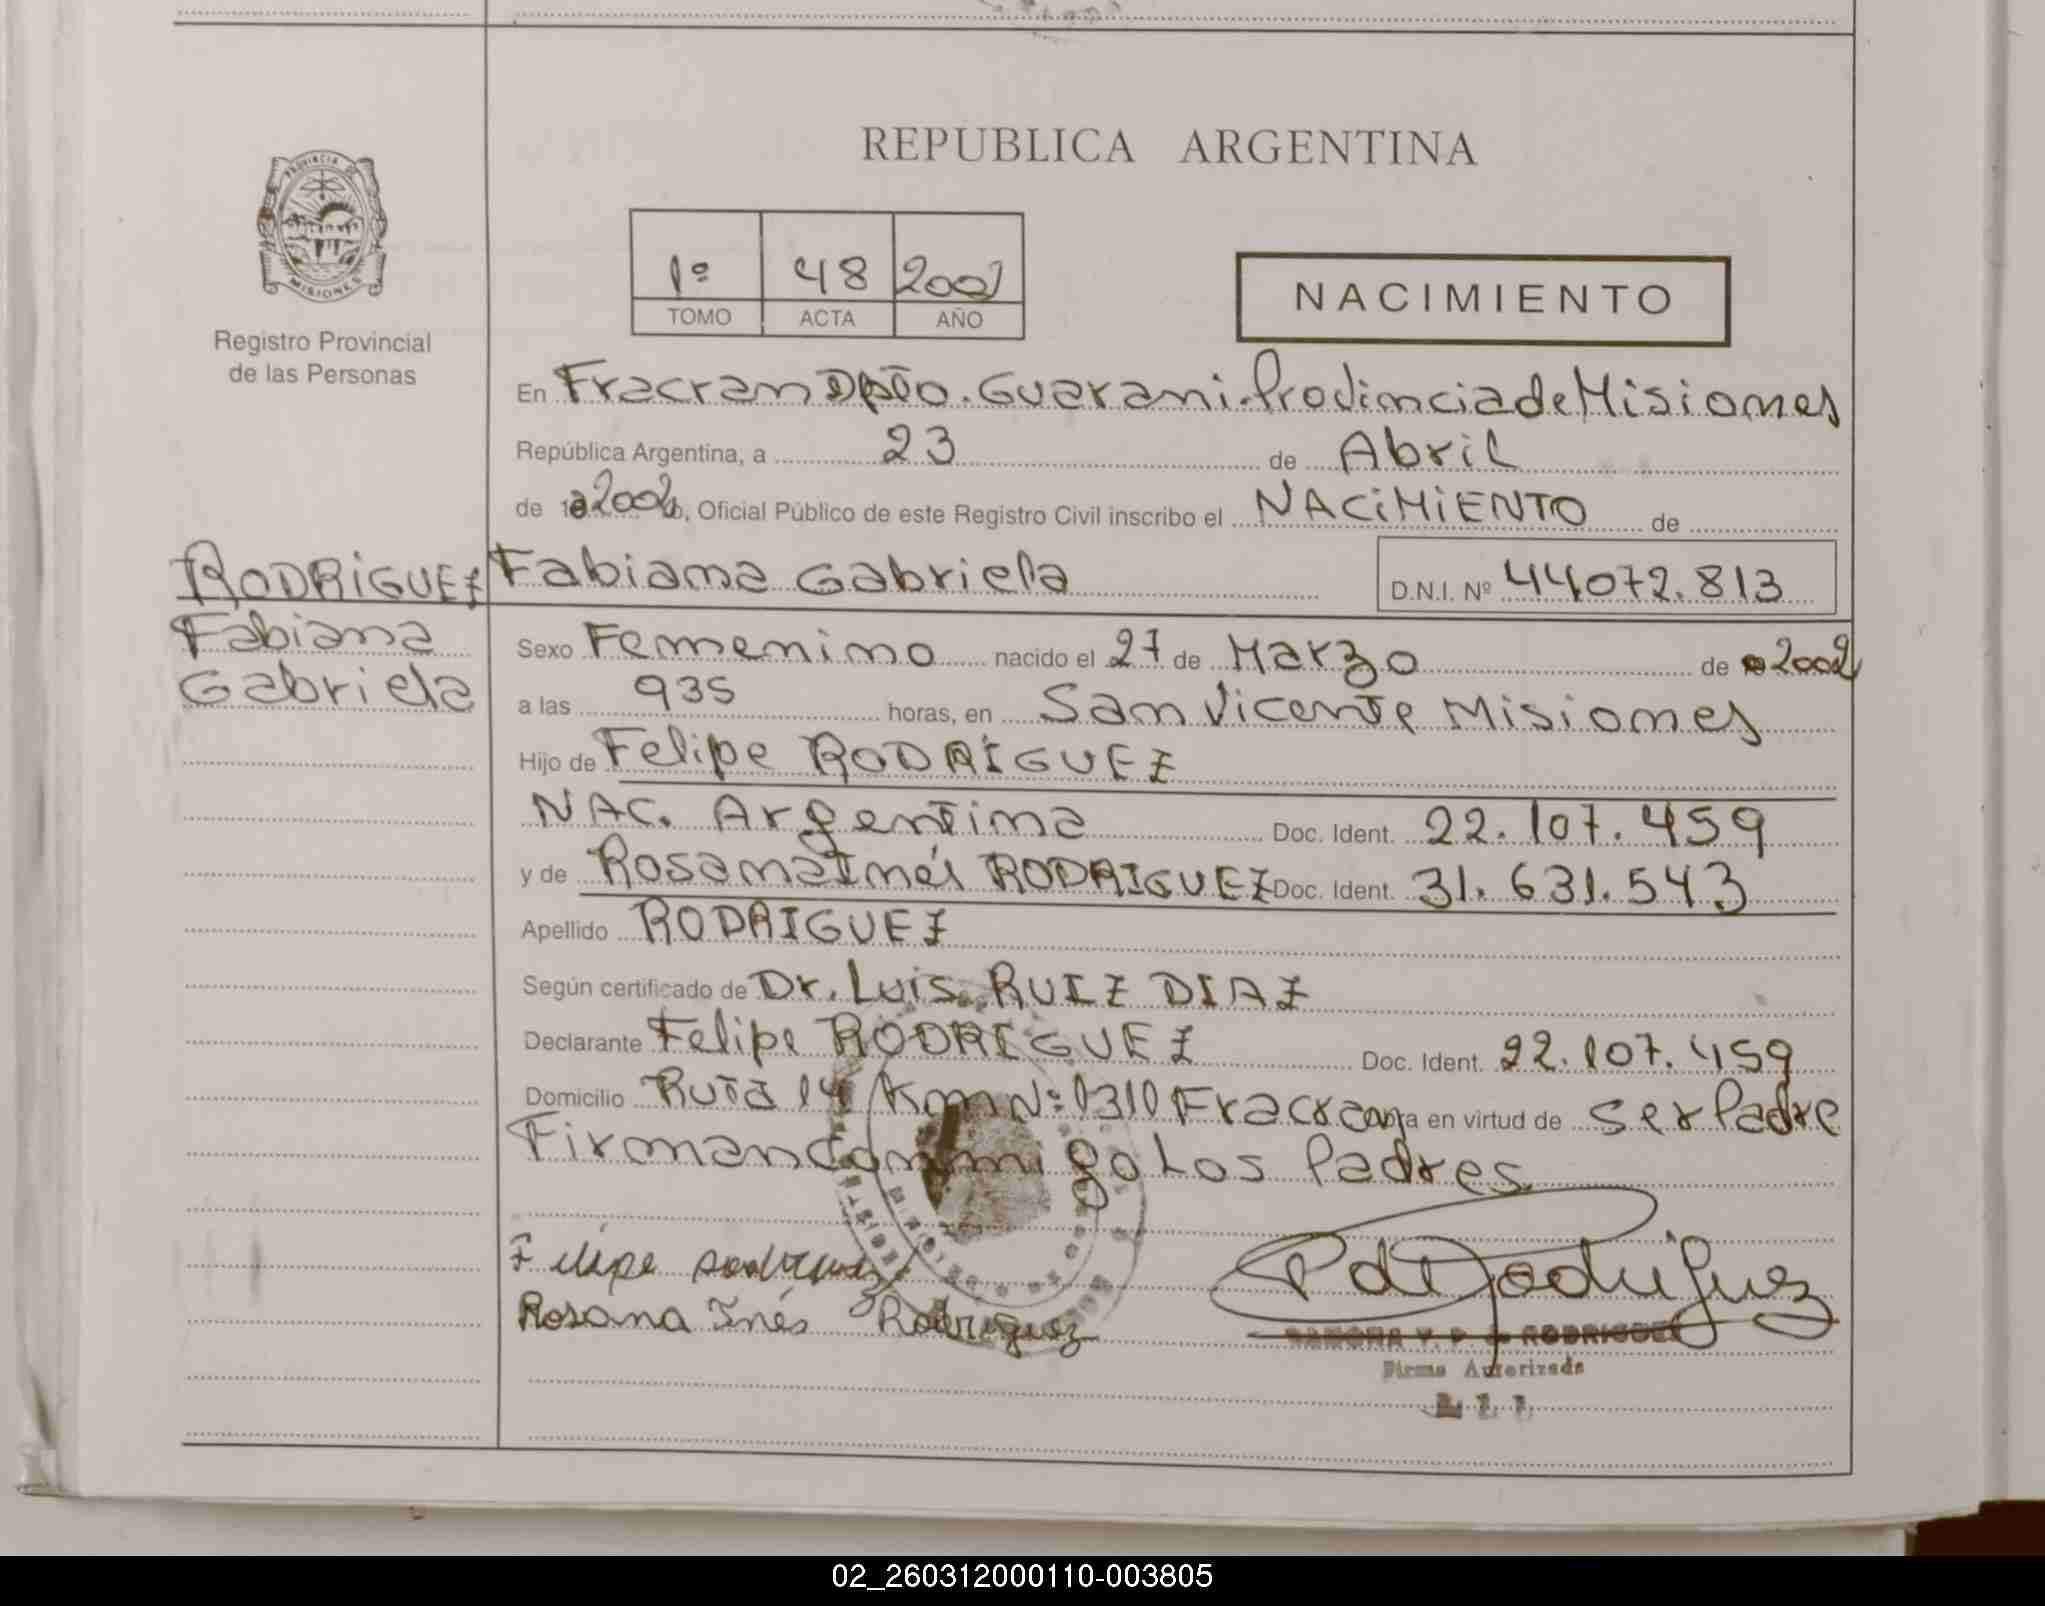 REPUBLICA ARGENTINA
PROVINCIA
MISIONES
Registro Provincial
de las Personas
1º 48 2002
TOMO ACTA AÑO
NACIMIENTO
En Fracran Dpto. Guarani. Provincia de Misiones
República Argentina, a 23 de Abril
de 2002, Oficial Público de este Registro Civil inscribo el NACIMIENTO de
RODRIGUEZ
Fabiana
Gabriela
Fabiana Gabriela D.N.I. Nº 44072.813
Sexo Femenino nacido el 27 de Marzo de 2002
a las 935 horas, en San Vicente Misiones
Hijo de Felipe RODRIGUEZ
NAC. Argentina Doc. Ident. 22.107.459
y de Rosana Inés RODRIGUEZ Doc. Ident. 31.631.543
Apellido RODRIGUEZ
Según certificado de Dr. Luis RUIZ DIAZ
Declarante Felipe RODRIGUEZ Doc. Ident. 22.107.459
Domicilio Ruta 14 Km Nº 1310 Fracran en virtud de ser Padre
Firman conmigo Los Padres
Felipe Rodriguez
Rosana Inés Rodriguez
Rodriguez
RAMONA RODRIGUEZ
Firma Autorizada
02_260312000110-003805